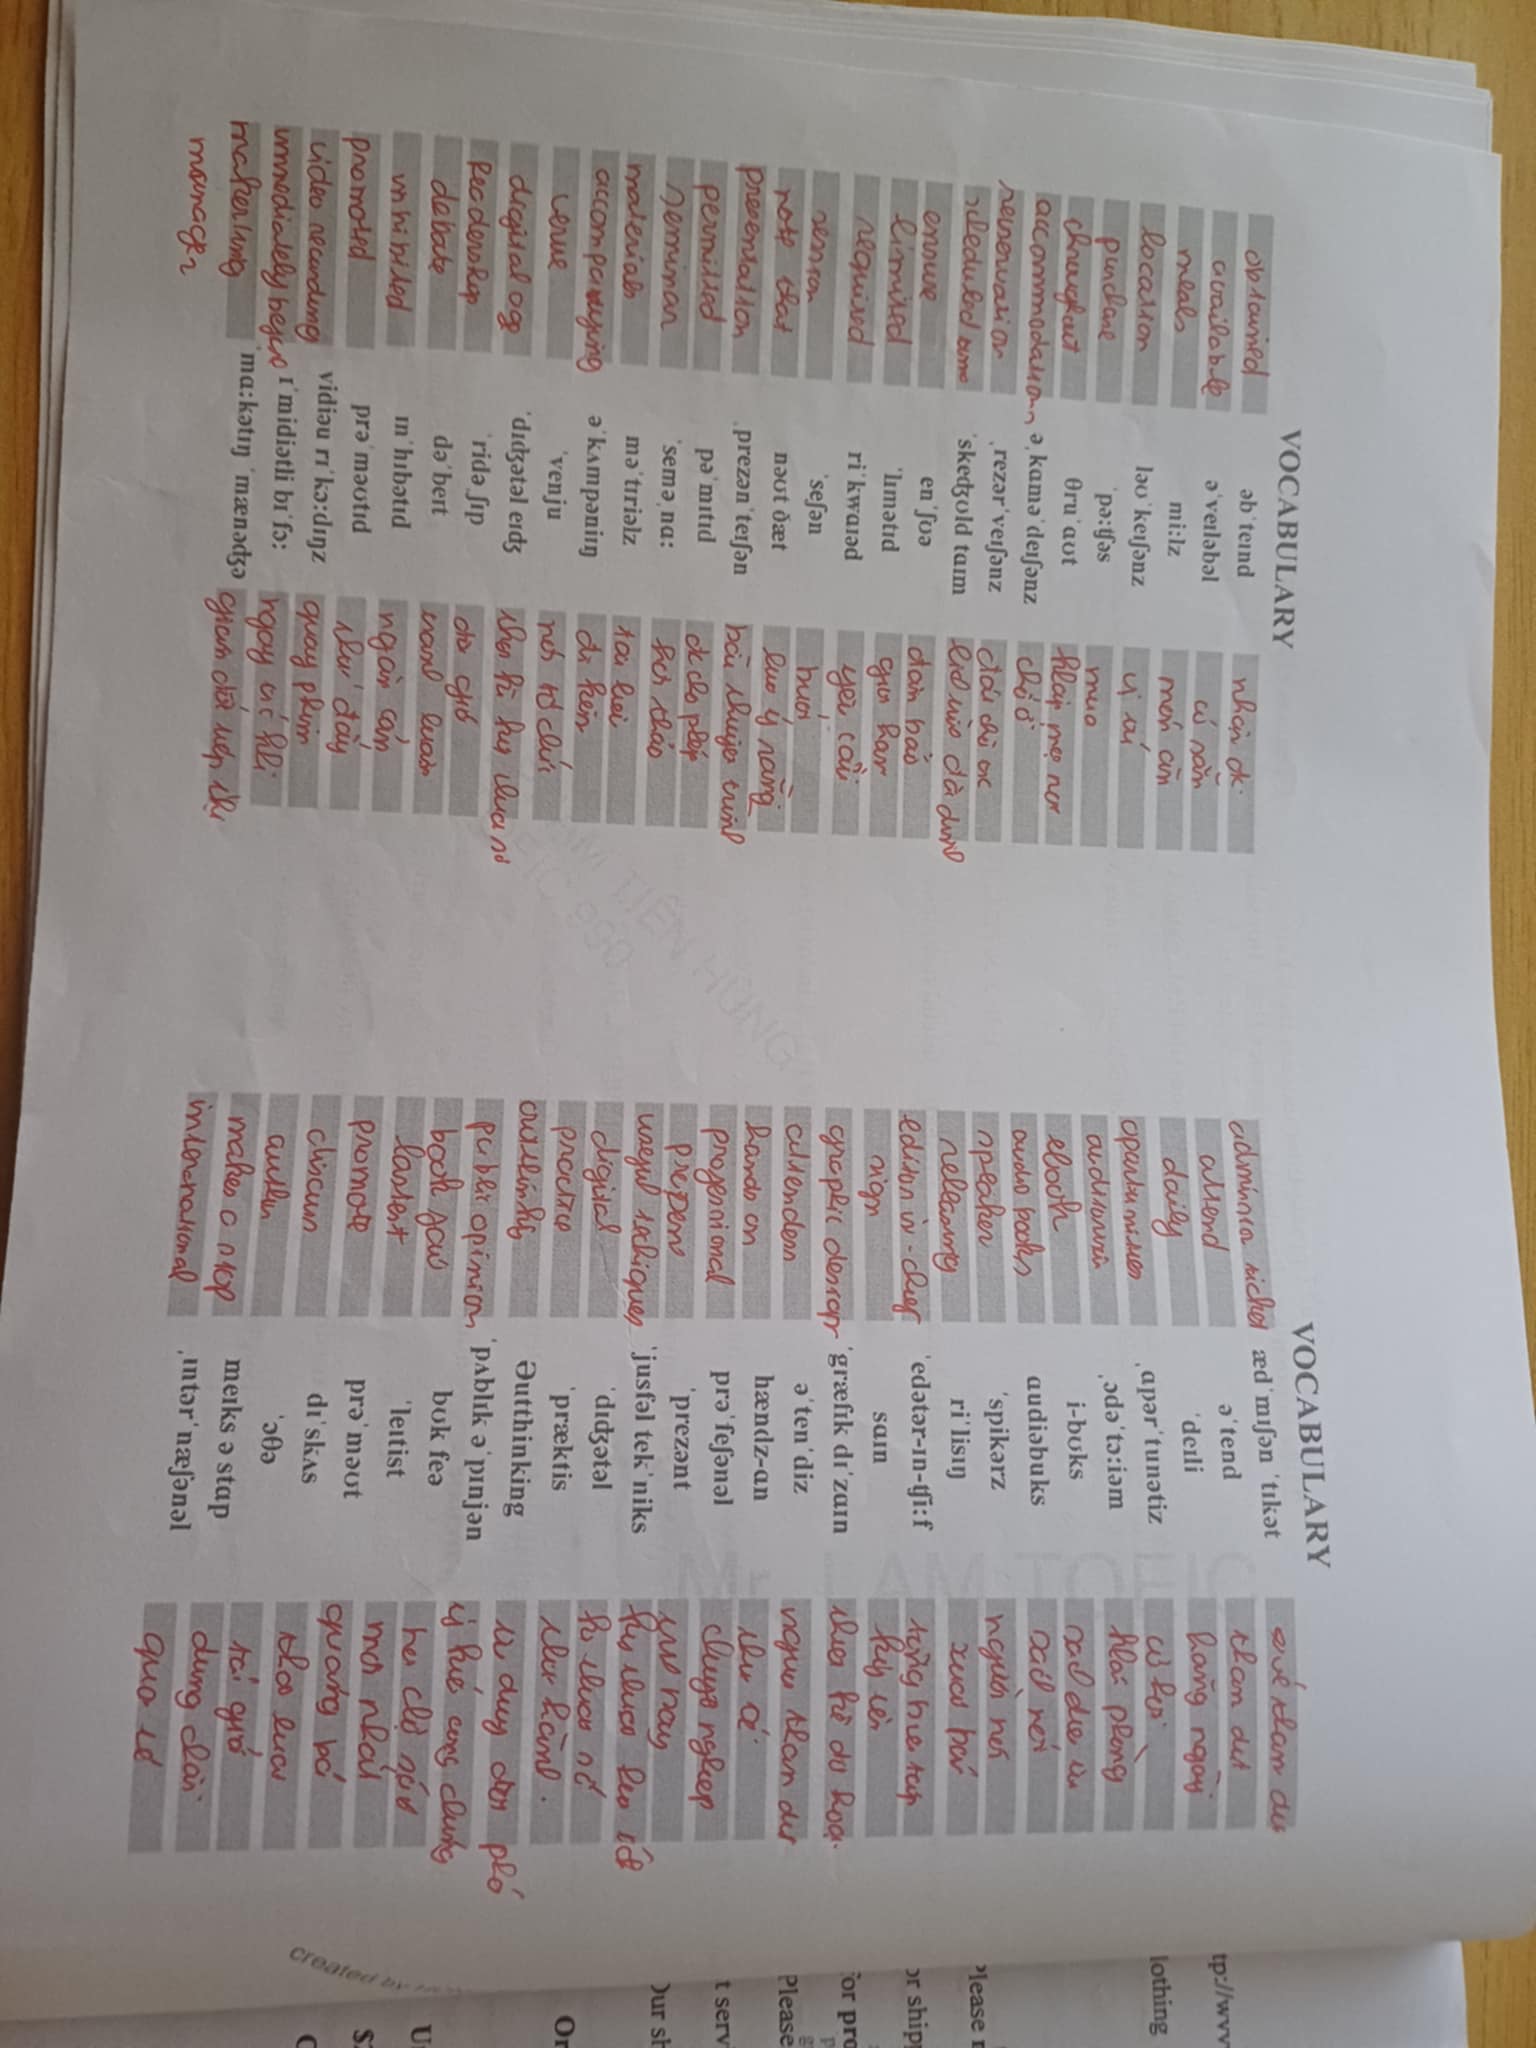 VOCABULARY
obtained əbˈteɪnd nhận đc
available əˈveɪləbəl có sẵn
meals miːlz món ăn
location ləʊˈkeɪʃənz vị trí
purchase ˈpəːʧəs mua
throughout θruˈaʊt khắp mọi nơi
accommodation əˌkɑməˈdeɪʃənz chỗ ở
reservation ˌrezərˈveɪʃənz đặt chỗ
scheduled time ˈskeʤʊld taɪm
ensure enˈʃʊə đảm bảo
limited ˈlɪmətɪd giới hạn
required riˈkwɑɪəd yêu cầu
session ˈseʃən buổi
note that nəʊt ðæt lưu ý rằng
presentation ˌprezənˈteɪʃən bài thuyết trình
permitted pəˈmɪtɪd đc cho phép
seminar ˈseməˌnɑː hội thảo
materials məˈtɪriəlz tài liệu
accompanying əˈkʌmpəniɪŋ đi kèm
venue ˈvenju nơi tổ chức
digital age ˈdɪʤətəl eɪʤ
Readership ˈridəˌʃɪp độc giả
debate dəˈbeɪt tranh luận
inhibited ɪnˈhɪbətɪd ngăn cản
promoted prəˈməʊtɪd thúc đẩy
video recording vidiəu rɪˈkɔːdɪŋz quay phim
immediately before ɪˈmidiətli bɪˈfɔː ngay trước khi
makerting ˈmɑːkətɪŋ ˈmænəʤə giám đốc tiếp thị
manager
VOCABULARY
admission ticket ædˈmɪʃən ˈtɪkət vé tham dự
attend əˈtend tham dự
daily ˈdeɪli hằng ngày
oportunities ˌɑpərˈtunətiz cơ hội
auditorium ˌɔdəˈtɔːiəm khán phòng
ebook i-bʊks sách điện tử
audio books ɑudiəbuks sách nói
speaker ˈspikərz người nói
releasing riˈlisɪŋ xuất bản
editor in-chief ˈedətər-ɪn-ʧiːf tổng biên tập
sign saɪn ký tên
graphic design ˈgræfɪk dɪˈzaɪn thiết kế đồ hoạ
attendees əˈtenˈdiz người tham dự
hands on hændz-ɑn thực tế
professional prəˈfeʃənəl chuyên nghiệp
ˈprezənt
useful techiques ˈjusfəl tekˈniks
digital ˈdɪʤətəl kĩ thuật số
practice ˈpræktis thực hành
outthinking Əutthinking tư duy đột phá
public opinion ˈpʌblɪk əˈpɪnjən ý kiến công chúng
book fair bʊk feə hội chợ sách
lastest ˈleɪtist mới nhất
promote prəˈməʊt quảng bá
discuss dɪˈskʌs thảo luận
author ˈɔθə tác giả
makes a stop meɪks ə stɑp dừng chân
international ˌɪntərˈnæʃənəl quốc tế